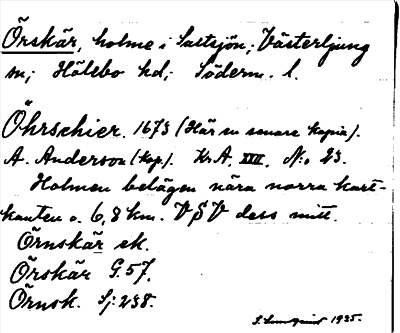 Örskär, holme i Saltsjön, Västerljung
sn; Hölebo hd; Söderm. l.
Öhrschier. 1673 (Här en senare kopia).
A. Anderson (kop.). Kr. A. XXII, N:o 23.
Holmen belägen nära norra kart-
kanten o. 6,8 km. VSV dess mitt.
Örnskär ek.
Örskär G.57.
Örnsk. Sj: 238.
S. Lundqvist 1935.